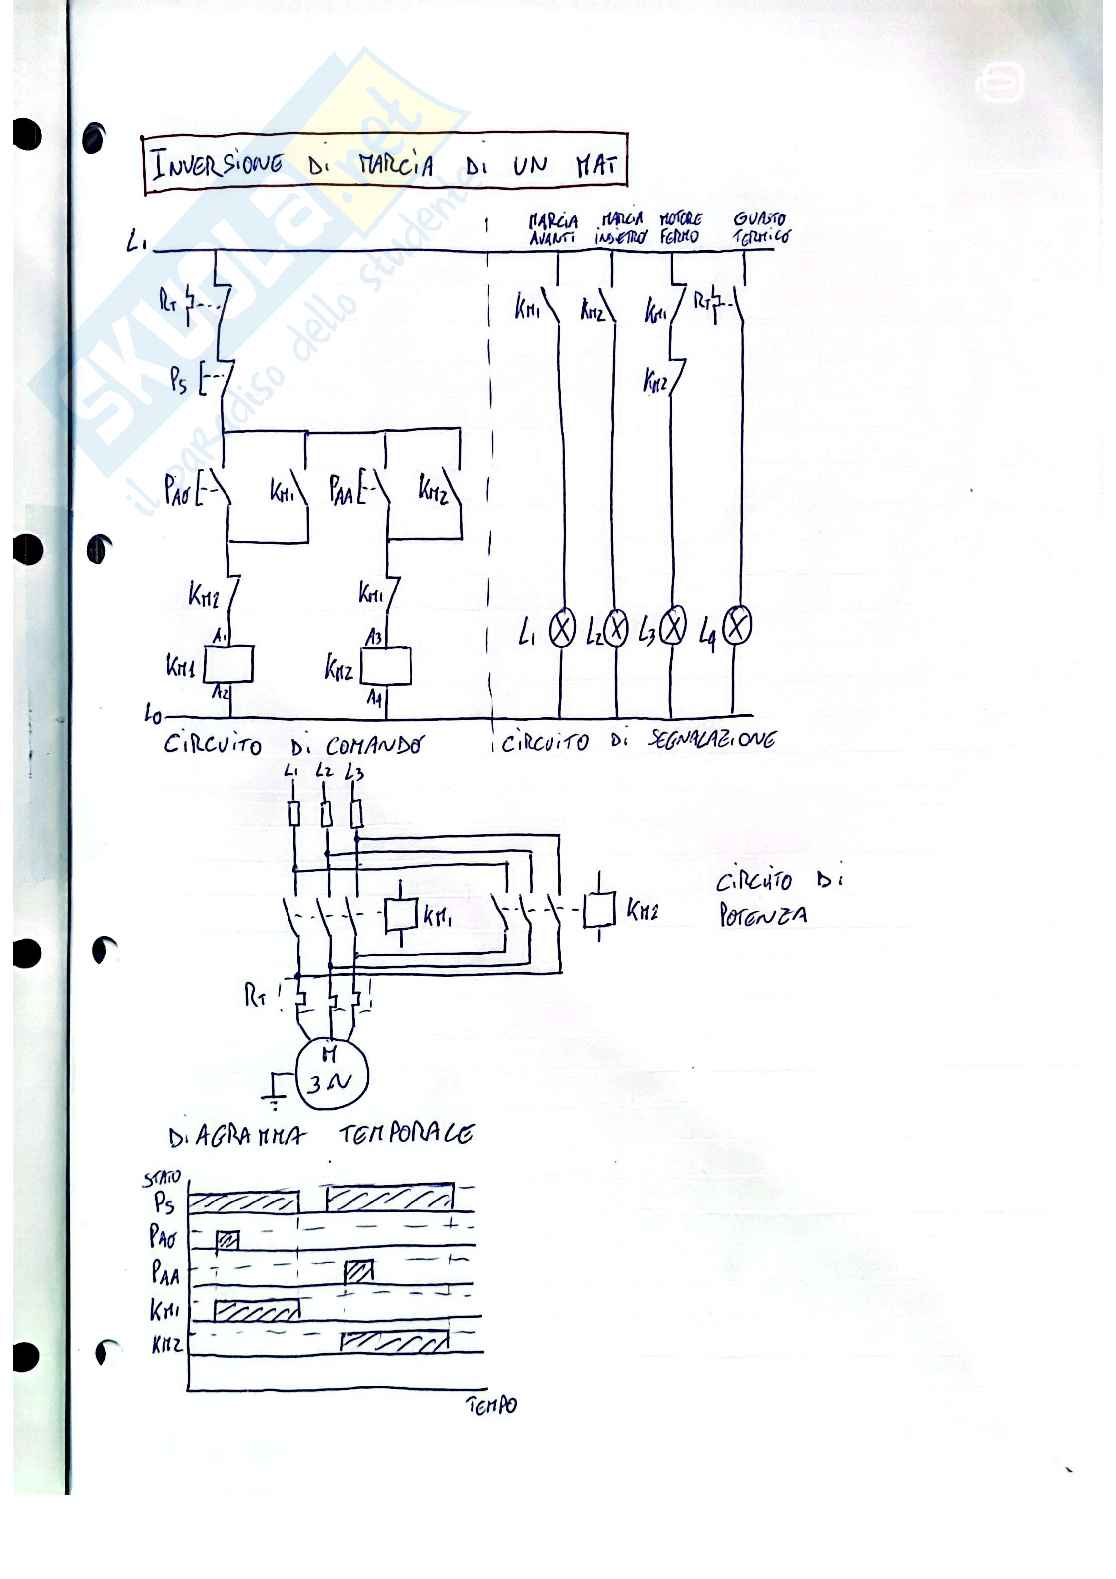 INVERSIONE Di MARCiA Di UN MAT
SKUOLA.net
il paradiso dello studente
MARCiA AVANTi
MARCiA iNDiETRO
MOTORE FERMO
GUASTO TERMiCO
L1
RT
KM1
KM2
KM1
RT
PS
KM2
KM1
PAA
KM2
KM2
KM1
A1
A3
L1
L2
L3
L4
KM1
KM2
A2
A4
L0
CiRCUiTO Di COMANDO
CiRCUiTO Di SEGNALAZiONE
L1 L2 L3
CiRCUiTO Di
POTENZA
KM1
KM2
RT
M
3~
DiAGRAMMA TEMPORALE
STATO
PS
PAA
KM1
KM2
TEMPO